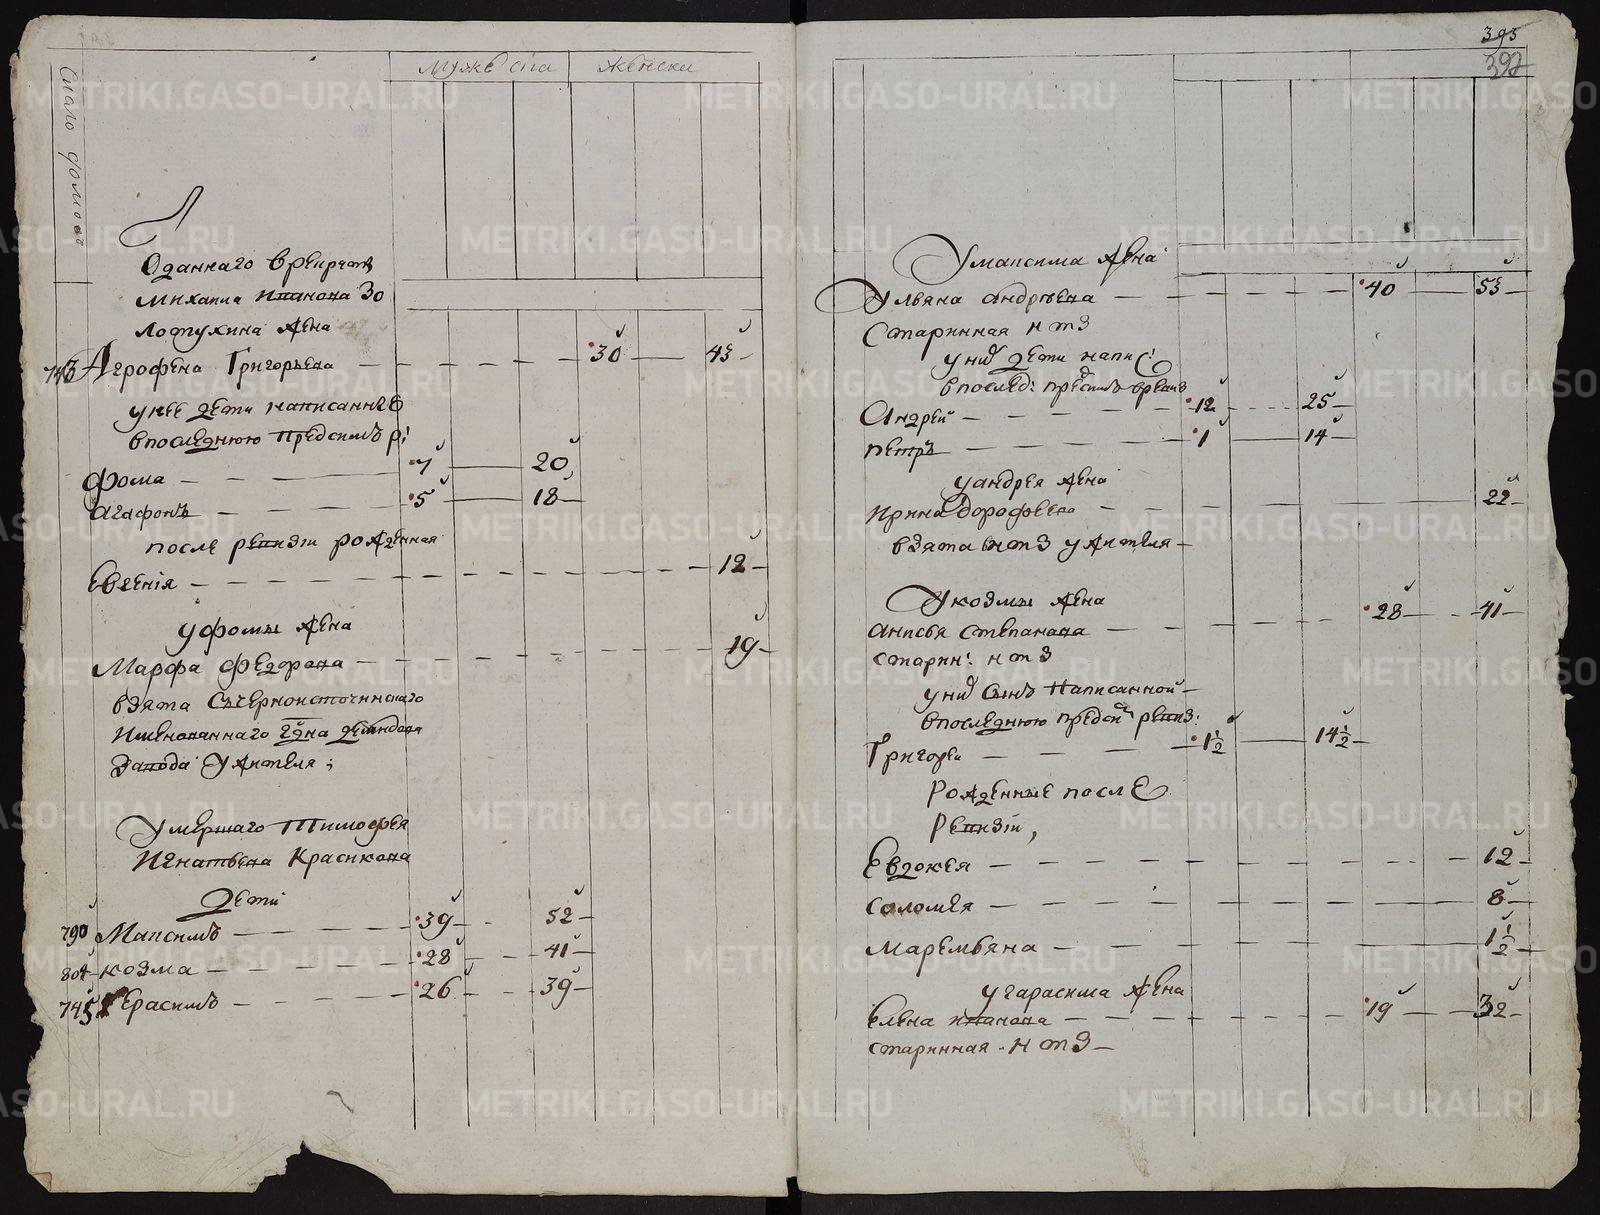 Стало домово
мужеска
женска
Оданнаго Врекрыты
михаила иванова Зо
лотухина жена
743 Агрофена Григорьева 30 43
унее дети написанные
впоследнюю предсимъ р:
Фома 7 20
Агафонъ 5 18
после ревизіи рожденная
Евгенія 12
уфомы жена
Марфа федорова 19
взята счерноисточинскаго
именованнаго гдна демидова
завода ужителя;
Умершаго Тимофея
Игнатьева Красикова
дети
790 Максимъ 39 52
804 козма 28 41
745 Герасимъ 26 39
393
397
Умаксима жена
Ульяна андреева 40 53
Старинная нтз
унид дети напис:
впослед: предсимъ времѧ
Андрей 12 25
петръ 1 14
уандрея жена
Ирина дорофеева 22
взята нтз ужителя
Укозмы жена
анисья степанова 28 41
старин: нтз
унид сынъ написанной
впоследнюю предси ревиз:
Григореи 1½ 14½
Рожденные после
Ревизіи,
Евдокея 12
соломея 8
маремьяна 1½
угарасима жена
Елена иванова 19 32
старинная нтз
METRIKI.GASO-URAL.RU